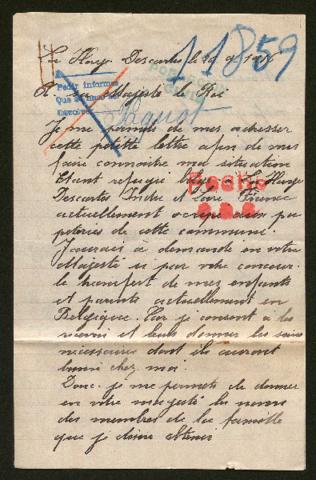 La Haye Descartes le
11859
A sa Majesté le Roi
Pedir informes
Que se han de
Je me permets de mes adresser
cette petite lettre afin de mes
faire connaitre ma situation
Etant refugié Belge a La Haye
Descartes Indre et Loire France
actuellement
de cette commune.
J'aurais à demandé en votre
Majesté si par votre concour
le transfert de mes enfants
et parents actuellement en
Belgique. Car je consent a les
recevoir et leur donner les soins
necessaires dont ils auront
besoin chez moi.
Donc je me permets de donner
en votre majesté les noms
des membres de la famille
que je désire obtenir